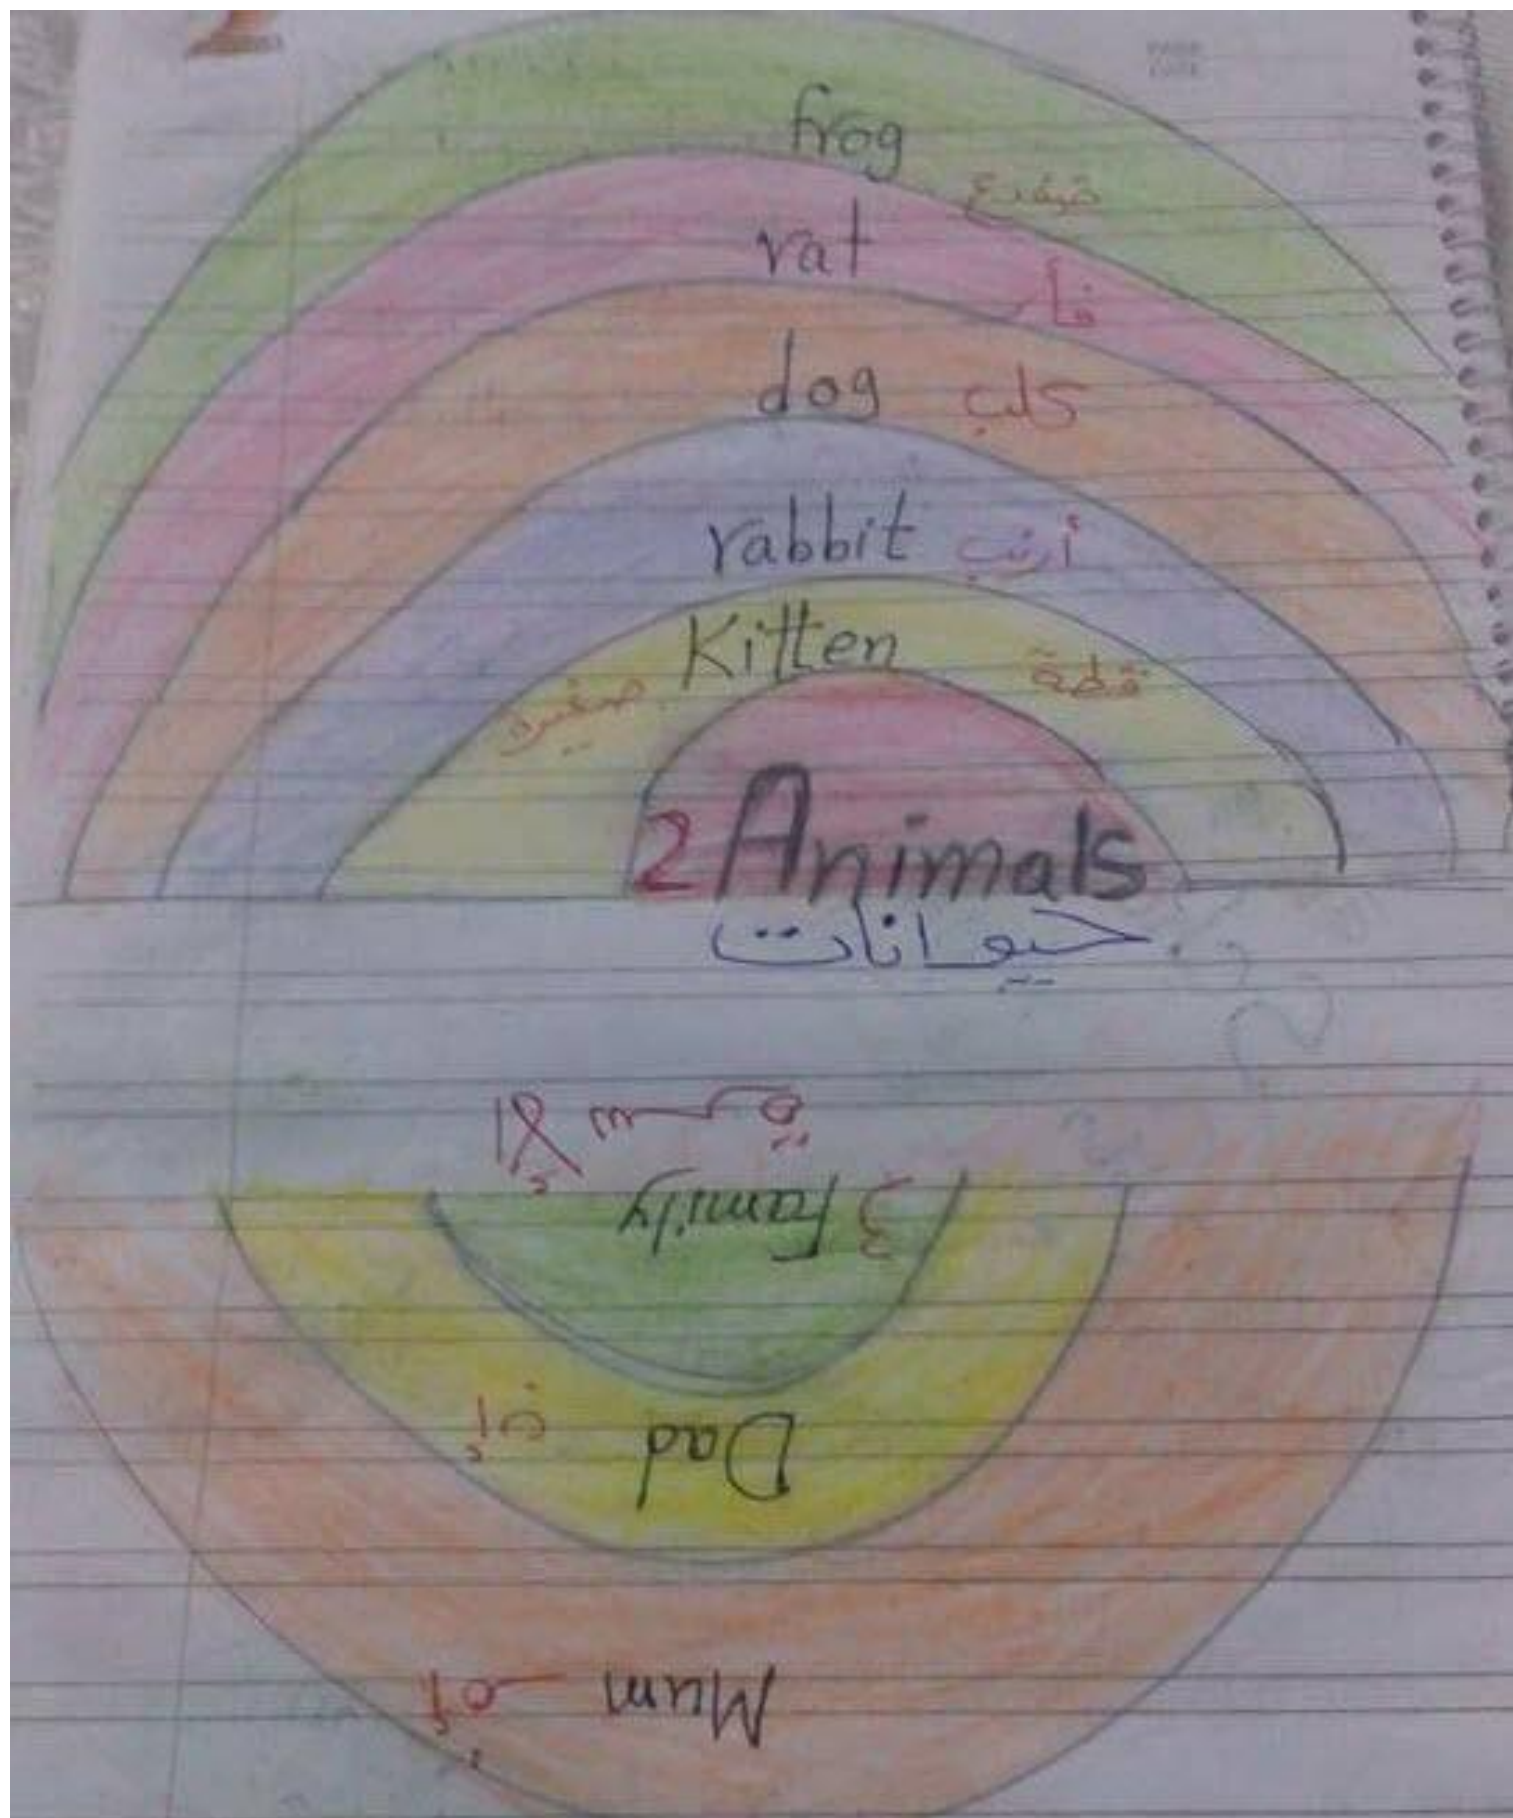 frog
ضفدع
rat
فأر
dog كلب
rabbit أرنب
Kitten
قطة صغيرة
2 Animals
حيوانات
الأسرة
3 Family
Dad أب
Mum أم